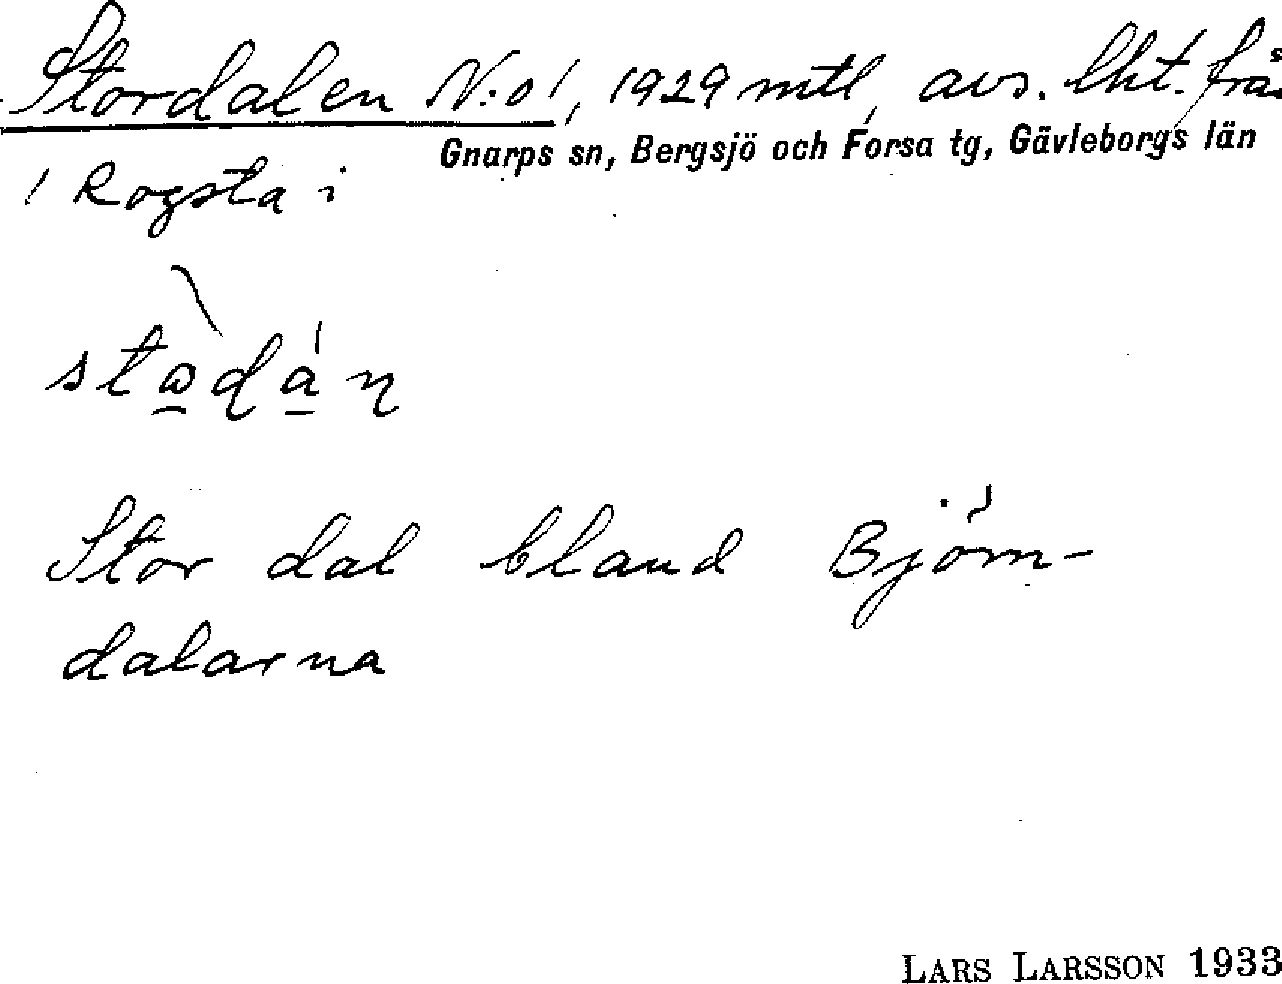 Stordalen N:o 1, 1929 mtl, avs. lht. från
Gnarps sn, Bergsjö och Forsa tg, Gävleborgs län
1 Rogsta i
Stor dal bland Björn-
dalarna
LARS LARSSON 1933